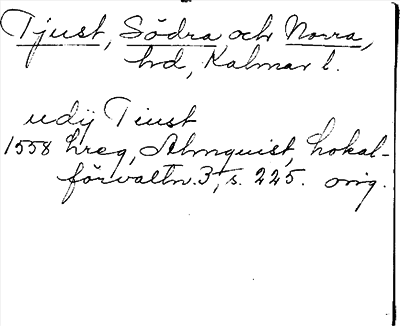 Tjust, Södra och Norra,
hd, Kalmar l.
udij Tiust
1558 hreg, Almquist, Lokal-
förvaltn. 3, s. 225. orig.